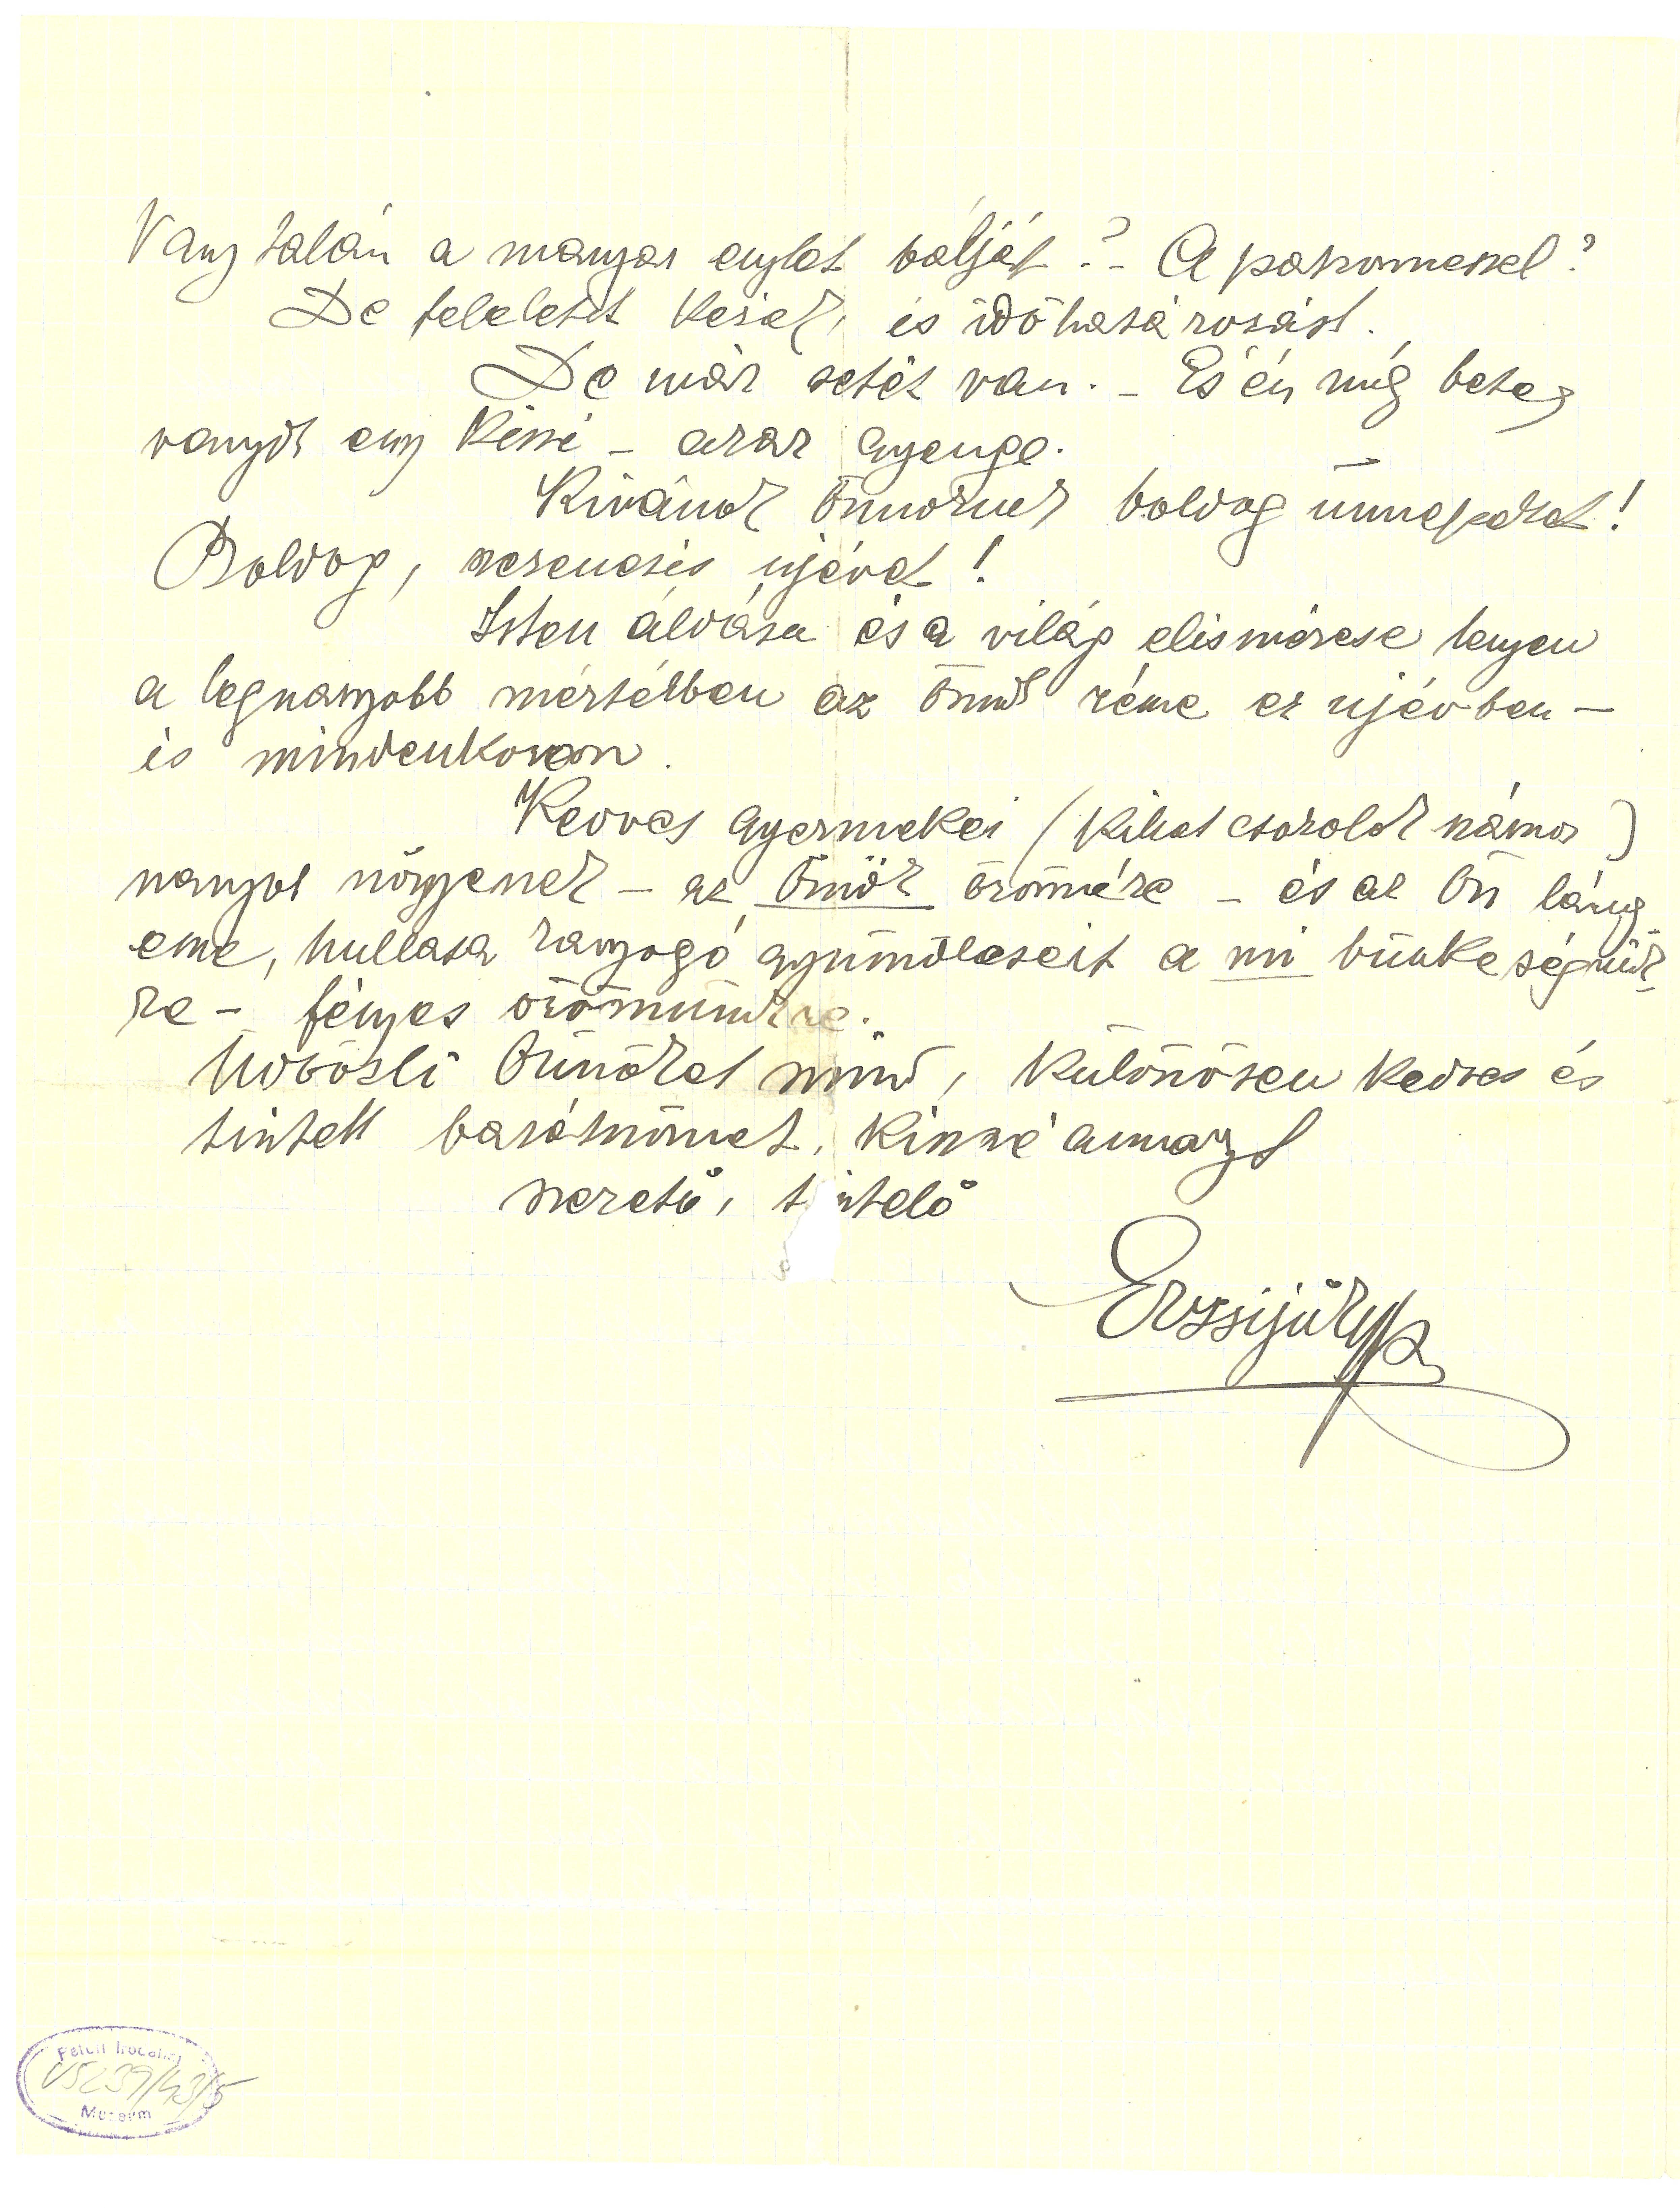 Vagy talán a magyar egylet bálját? - A parommessel?
De feleletet kérek, és időhatározást.
De már setét van. - És én még beteg
vagyok egy kissé - azaz gyenge.
Kívánok Önöknek boldog ünnepeket!
Boldog, szerencsés ujévet!
Isten áldása és a világ elismerése legyen
a legnagyobb mértékben az Önök része ez ujévben -
és mindenkoron.
Kedves gyermekei (kiket csókolok számos)
nagyot nőjjenek - az Önök örömére - és az Ön láng
esze, hullassa ragyogó gyümölcseit a mi büszkeségünk
re - fényes örömünkre.
Üdvözli Önöket mind, különösen kedves és
tisztelt barátnőmet, kissé annagyt
szerető, tisztelő